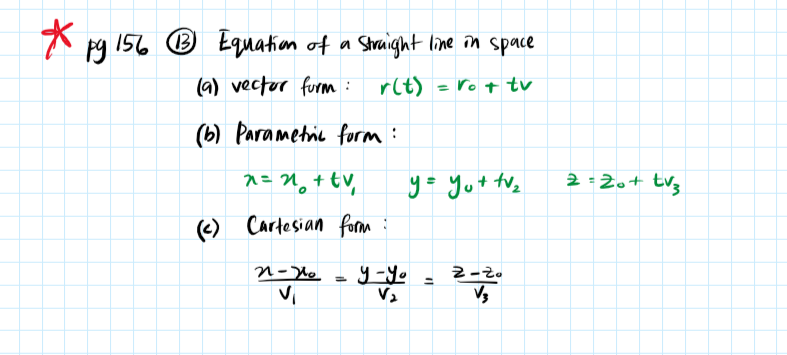 * pg 156 ⑬ Equation of a straight line in space
(a) vector form : r(t) = r₀ + tv
(b) Parametric form :
x = x₀ + tv₁ y = y₀ + tv₂ z = z₀ + tv₃
(c) Cartesian form :
(x - x₀)/v₁ = (y - y₀)/v₂ = (z - z₀)/v₃